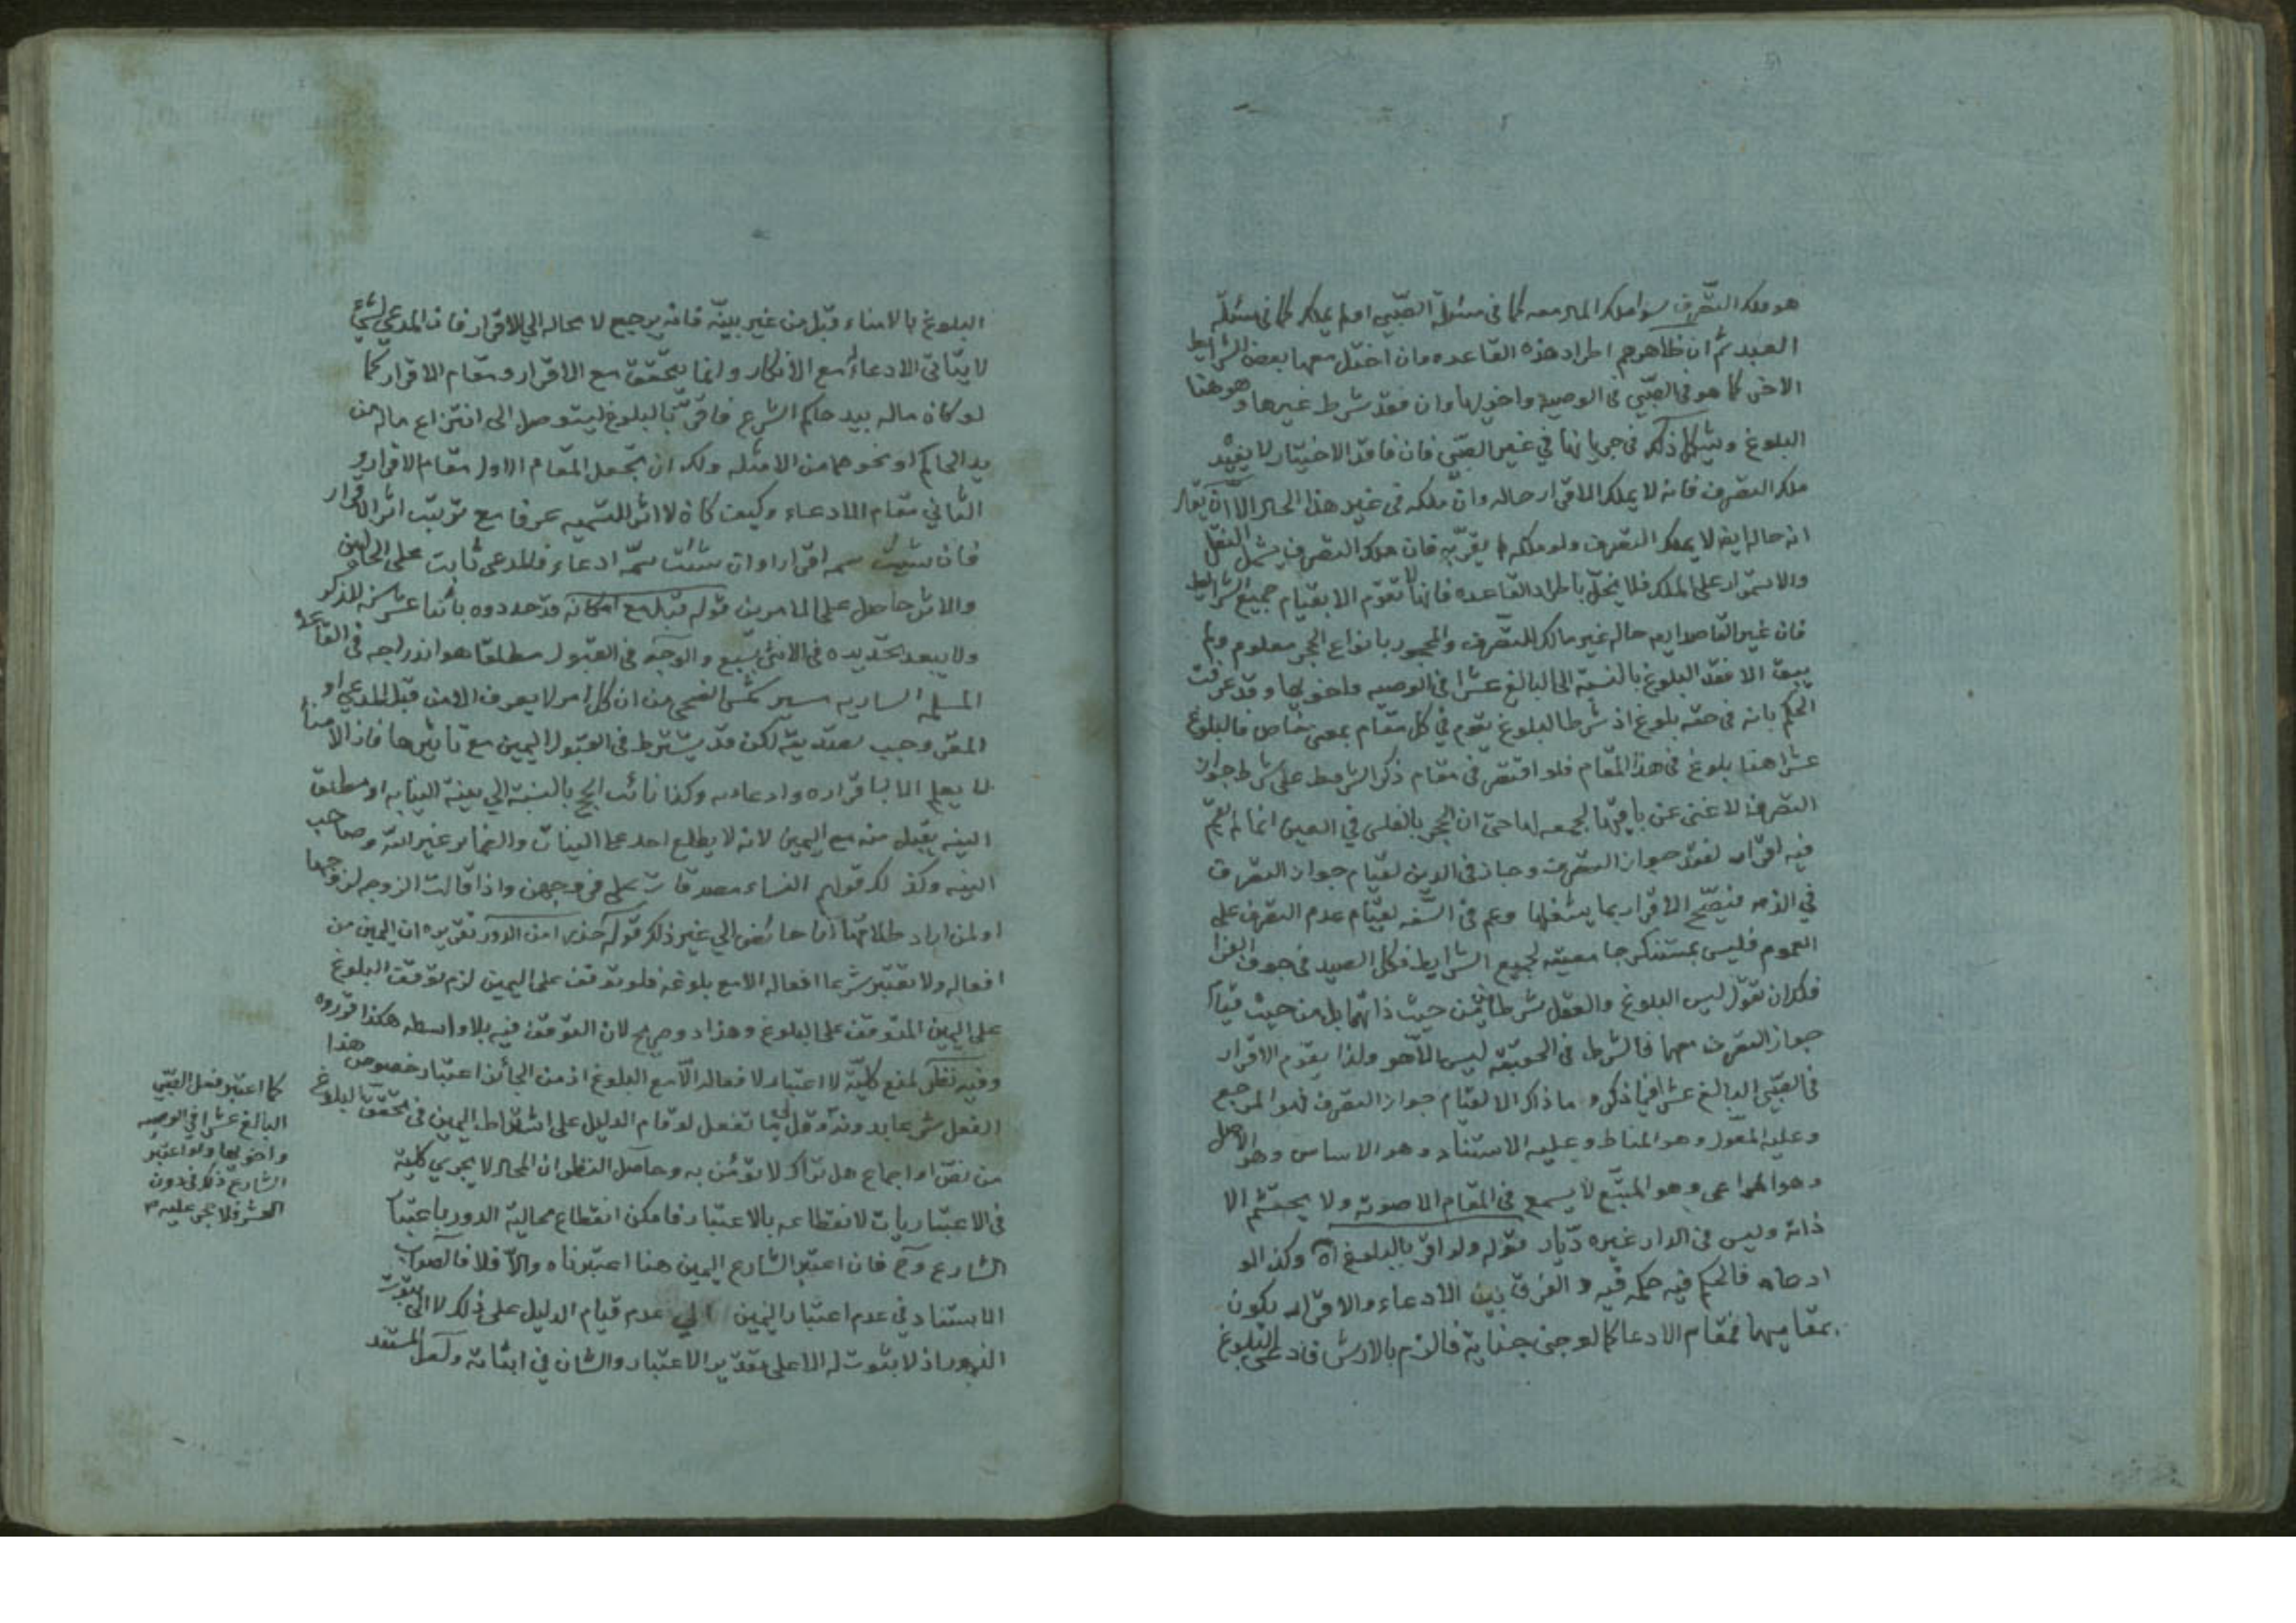 هو ملك التصرف سواء ملك المال معه كما فى مسئلة الصبي او لم يملك كما فى مسئلة
العبد ثم ان ظاهرهم اطراد هذه القاعده وان اختل معها بعض الشرايط
الاخر كما هو فى الصبي فى الوصية واخواتها وان فقد شرط غيرها وهو هنا
البلوغ ويشكل ذلك فى جريانها في غير الصبي فان فاقد الاختيار لا يفيد
ملك التصرف فانه لا يملك الاقرار حاله وان ملكه فى غير هذا الحال الا ان يقال
انه حاله ايضا لا يملك التصرف ولو ملكه لم يقر به فان ملك التصرف يشمل النقل
والاستمرار على الملك فلا يخل باطراد القاعده فانها لا تقوم الا بقيام جميع الشرايط
فان غير القاصد ايضا حاله غير مالك للتصرف والمحجور بانواع الحجر معلوم ولم
يبق الا فقد البلوغ بالنسبة الى البالغ عشرا فى الوصيه واخواتها وقد عرفت
الحكم بانه فى حقه بلوغ اذ شرط البلوغ يقوم في كل مقام بمعنى خاص فالبلوغ
عشرا هنا بلوغ فى هذا المقام فلو اقتصر فى مقام ذكر الشرط على شرط جواز
التصرف لاغنى عن باقيها لجمعه لها حتى ان الحجر بالفلس في العين انما لم يقم
فيه اقرار لفقد جواز التصرف وجاز فى الدين لقيام جواز التصرف
في الذمه فيصح الاقرار بما يشغلها وعم فى السفه لقيام عدم التصرف على
العموم فليس بمستنكر جامعيته لجميع الشرايط فكل الصيد فى جوف الفرا
فلك ان تقول ليس البلوغ والعقل شرطا من حيث ذاتهما بل من حيث قيام
جواز التصرف معها فالشرط فى الحقيقة ليس الا هو ولذا يقوم الاقرار
فى الصبي البالغ عشرا فيما ذكر وما ذاك الا لقيام جواز التصرف فهو المرجع
وعليه المعول وهو المناط وعليه الاستناد وهو الاساس وهو الاصل
وهو المراعى وهو المتبع لا يسمع فى المقام الا صوته ولا يحتشم الا
ذاته وليس فى الدار غيره ديار قوله ولو اقر بالبلوغ اه وكذا لو
ادعاه فالحكم فيه حكمه فيه والفرق بين الادعاء والاقرار يكون
بمقاميهما فمقام الادعا كما لو جنى جناية فالزم بالارش فادعى البلوغ
البلوغ بالامناء قبل من غير بينة فانه يرجع لا محاله الي الاقرار فان المدعي لشئ
لا يتاتى الادعاء مع الانكار وانما يتحقق مع الاقرار ومقام الاقرار كما
لو كان ماله بيد حاكم الشرع فاقر بالبلوغ ليتوصل الى انتزاع ماله من
يد الحاكم او نحوهما من الامثله ولك ان تجعل المقام الاول مقام الاقرار و
الثاني مقام الادعاء وكيف كان لا اثر للتسميه عرفا مع ترتب اثر الاقرار
فان شئت سمه اقرارا وان شئت سمه ادعاء فالمدعى ثابت على الحالين
والاثر حاصل على الامرين قوله قبل مع امكانه قد حددوه باثنا عشر سنه للذكر
ولا يبعد تحديده فى الانثى بتسع والوجه فى القبول مطلقا هو اندراجه فى القاعدة
المسلمه الساريه سير شمس الضحى من ان كل امر لا يعرف الا من قبل المدعي او
المقر وجب تصديقه لكن قد يشترط فى القبول اليمين مع تاثيرها فاذ الامناء
لا يعلم الا باقراره وادعاءه وكذا نائب الحج بالنسبة الي نية النيابه او مطلق
النيه يقبل منه مع اليمين لانه لا يطلع احد على النيات والضماير غير الله وصاحب
النيه وكذلك قولهم النساء مصدقات على فروجهن واذا قالت الزوجه لزوجها
او لمن اراد طلاقها انا حائض الي غير ذلك قوله حذرا من الدور تقريره ان اليمين من
افعاله ولا تعتبر شرعا افعاله الا مع بلوغه فلو توقف على اليمين لزم توقف البلوغ
على اليمين المتوقف على البلوغ وهذا دور صريح لان التوقف فيه بلا واسطه هكذا قرروه
وفيه نظر لمنع كلية لا اعتبار لافعاله الا مع البلوغ اذ من الجائز اعتبار خصوص هذا
الفعل شرعا بدونه وقل ما تفعل لو قام الدليل على اشتراط اليمين فى تحقق البلوغ
من نص او اجماع هل تراك لا تؤمن به وحاصل النظر ان المحال لا يجري كلية
فى الاعتباريات لانقطاعه بالاعتبار فامكن انقطاع محالية الدور باعتبار
الشارع وح فان اعتبر الشارع اليمين هنا اعتبرناه والا فلا فالصواب
الاستناد في عدم اعتبار اليمين الي عدم قيام الدليل على ذلك لا الى ثبوت
الدور اذ لا ثبوت له الا على تقدير الاعتبار والشان في اثباته ولعل المستند
كما اعتبر فعل الصبي
البالغ عشرا في الوصيه
واخواتها ولو اعتبر
الشارع ذلك فى دون
العشر فلا حجر عليه